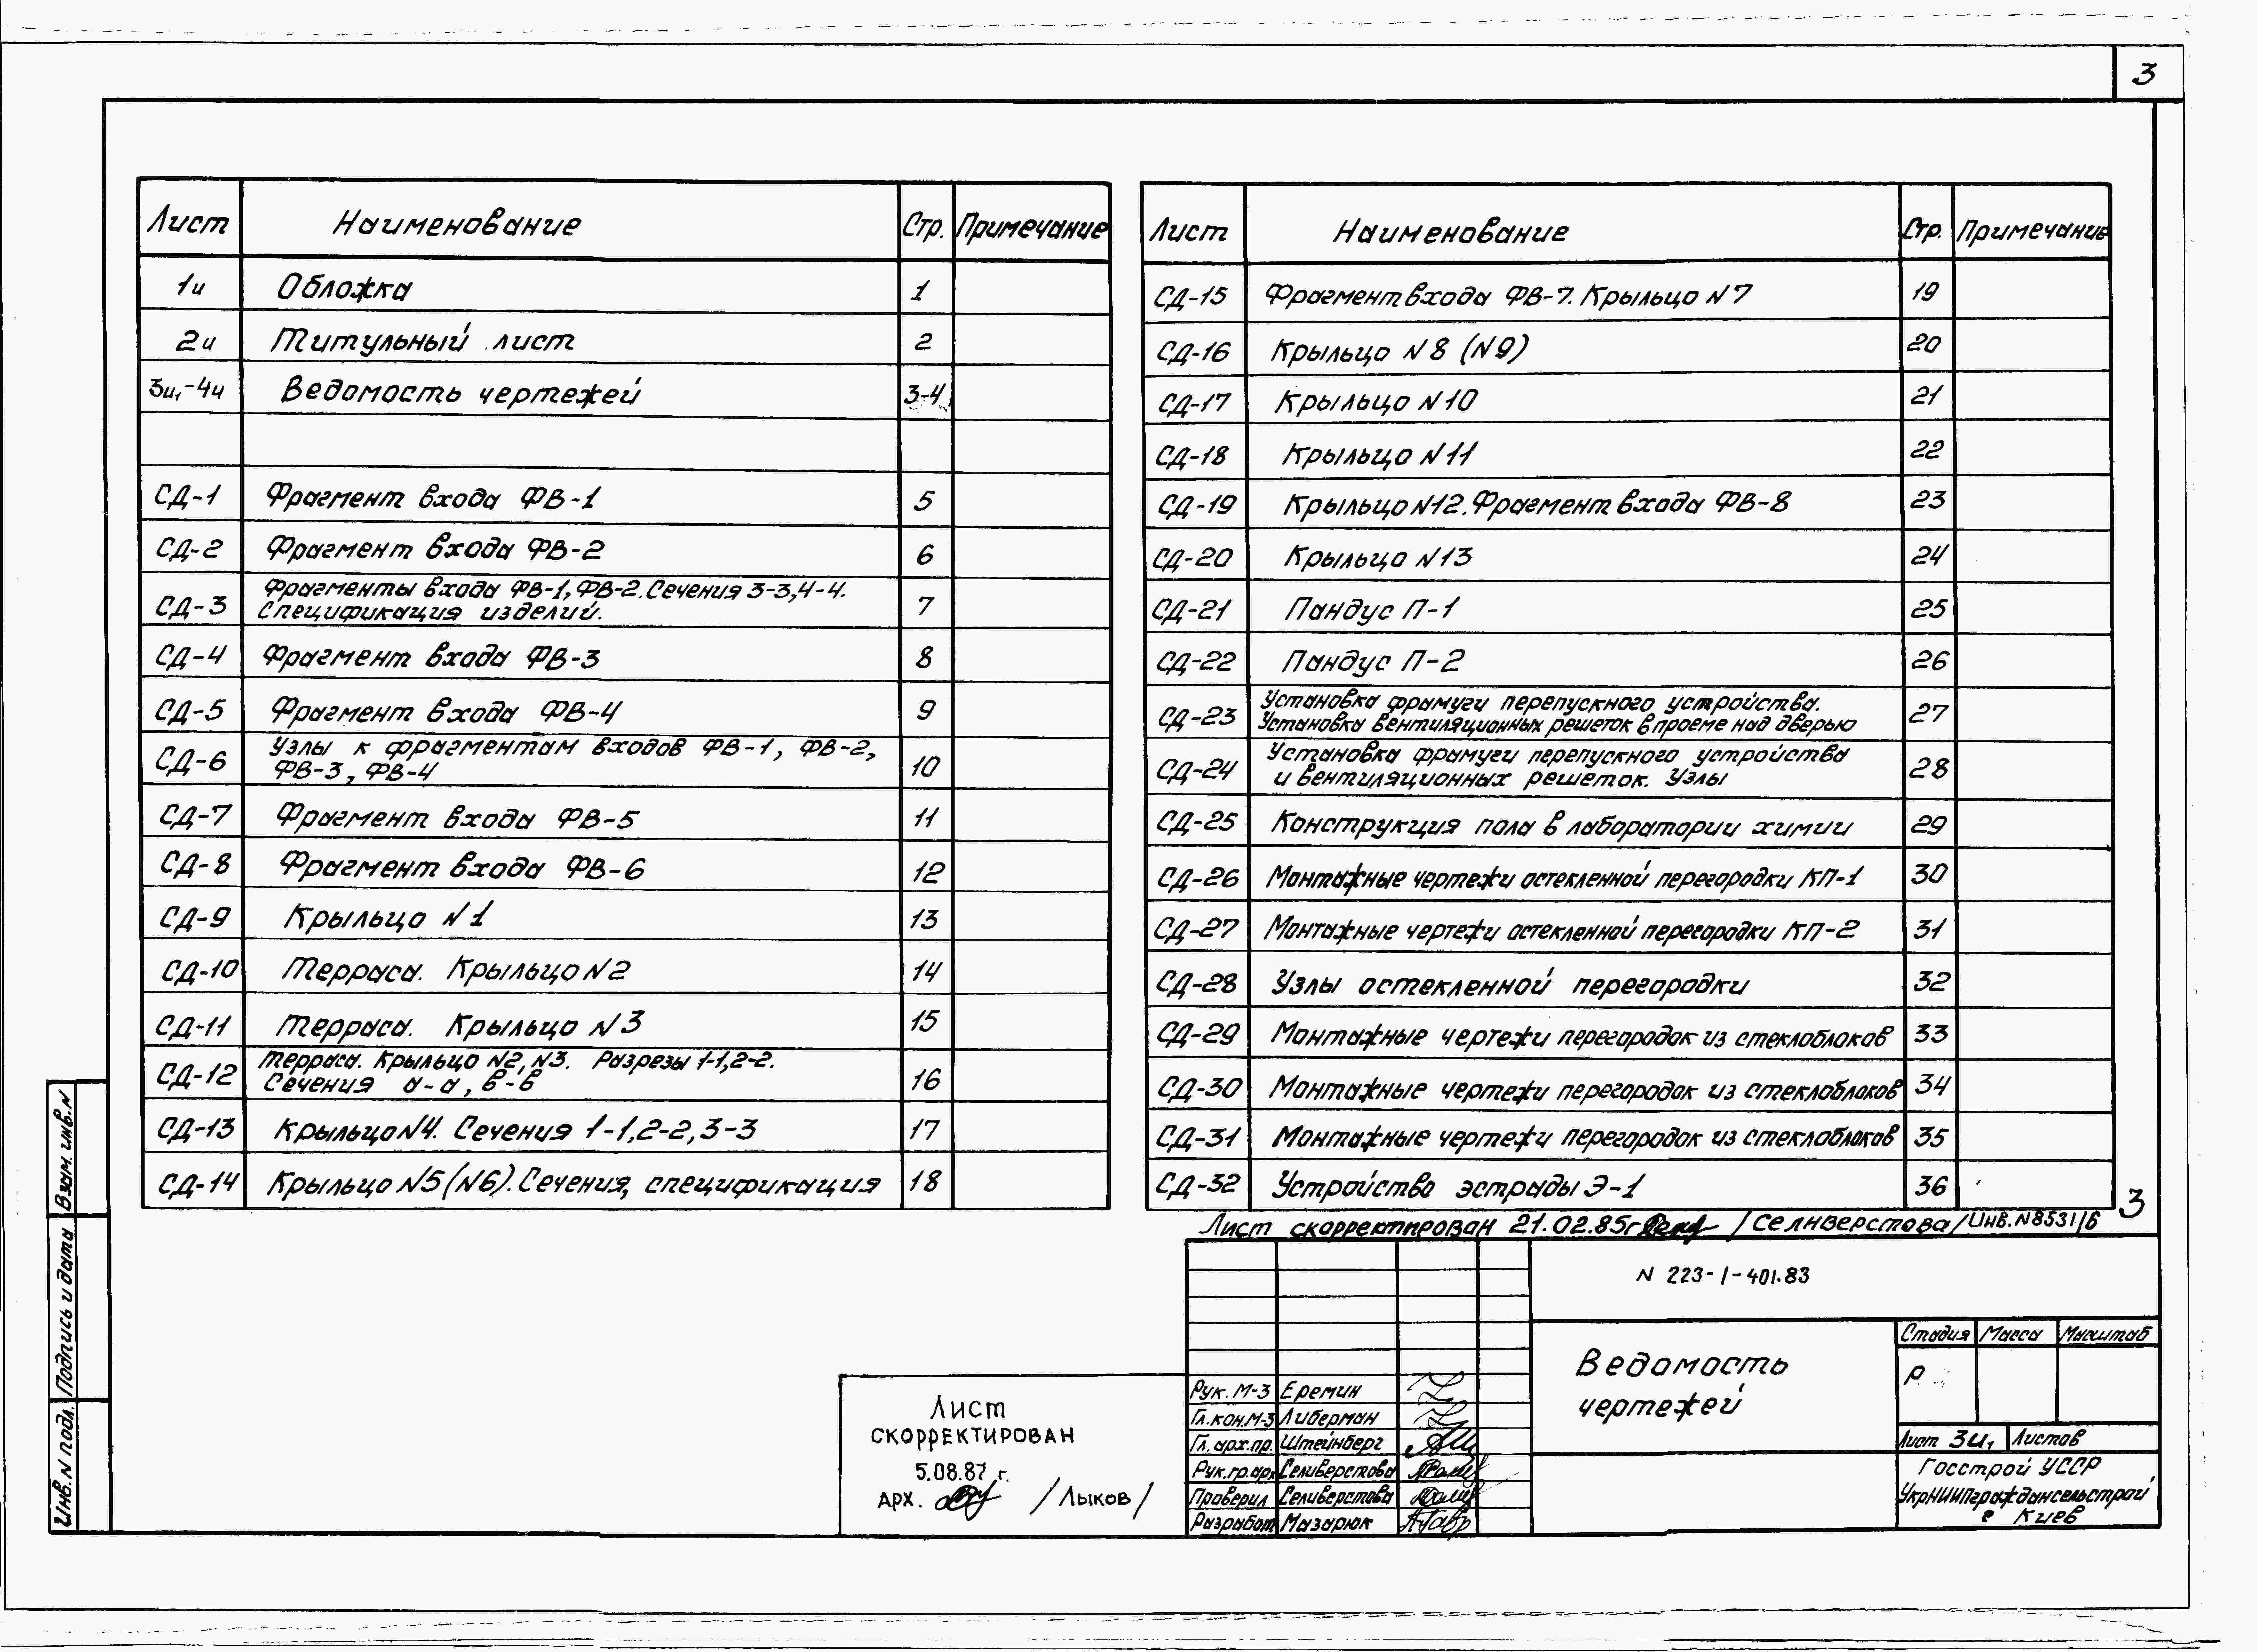 3
Лист Наименование Стр. Примечание
1и Обложка 1
2и Титульный лист 2
3и₁-4и Ведомость чертежей 3-4
СД-1 Фрагмент входа ФВ-1 5
СД-2 Фрагмент входа ФВ-2 6
СД-3 Фрагменты входа ФВ-1, ФВ-2. Сечения 3-3, 4-4.
Спецификация изделий. 7
СД-4 Фрагмент входа ФВ-3 8
СД-5 Фрагмент входа ФВ-4 9
СД-6 Узлы к фрагментам входов ФВ-1, ФВ-2,
ФВ-3, ФВ-4 10
СД-7 Фрагмент входа ФВ-5 11
СД-8 Фрагмент входа ФВ-6 12
СД-9 Крыльцо N1 13
СД-10 Терраса. Крыльцо N2 14
СД-11 Терраса. Крыльцо N3 15
СД-12 Терраса. Крыльцо N2, N3. Разрезы 1-1, 2-2.
Сечения а-а, в-в 16
СД-13 Крыльцо N4. Сечения 1-1, 2-2, 3-3 17
СД-14 Крыльцо N5 (N6). Сечения, спецификация 18
Лист Наименование Стр. Примечание
СД-15 Фрагмент входа ФВ-7. Крыльцо N7 19
СД-16 Крыльцо N8 (N9) 20
СД-17 Крыльцо N10 21
СД-18 Крыльцо N11 22
СД-19 Крыльцо N12. Фрагмент входа ФВ-8 23
СД-20 Крыльцо N13 24
СД-21 Пандус П-1 25
СД-22 Пандус П-2 26
СД-23 Установка фрамуги перепускного устройства.
Установка вентиляционных решеток в проеме над дверью 27
СД-24 Установка фрамуги перепускного устройства
и вентиляционных решеток. Узлы 28
СД-25 Конструкция пола в лаборатории химии 29
СД-26 Монтажные чертежи остекленной перегородки КП-1 30
СД-27 Монтажные чертежи остекленной перегородки КП-2 31
СД-28 Узлы остекленной перегородки 32
СД-29 Монтажные чертежи перегородок из стеклоблоков 33
СД-30 Монтажные чертежи перегородок из стеклоблоков 34
СД-31 Монтажные чертежи перегородок из стеклоблоков 35
СД-32 Устройство эстрады Э-1 36
3
Лист скорректирован 21.02.85г /Селиверстова/ Инв. N8531/6
N 223-1-401.83
Ведомость
чертежей
Стадия Масса Масштаб
Р
Лист 3и₁ Листов
Госстрой УССР
УкрНИИПграждансельстрой
г Киев
Рук. М-3 Еремин
Гл. кон. М-3 Либерман
Гл. арх. пр. Штейнберг
Рук. гр. арх Селиверстова
Проверил Селиверстова
Разработ Мазарюк
Лист
скорректирован
5.08.87 г.
арх. /Лыков/
Взам. инв. N
Подпись и дата
Инв. N подл.